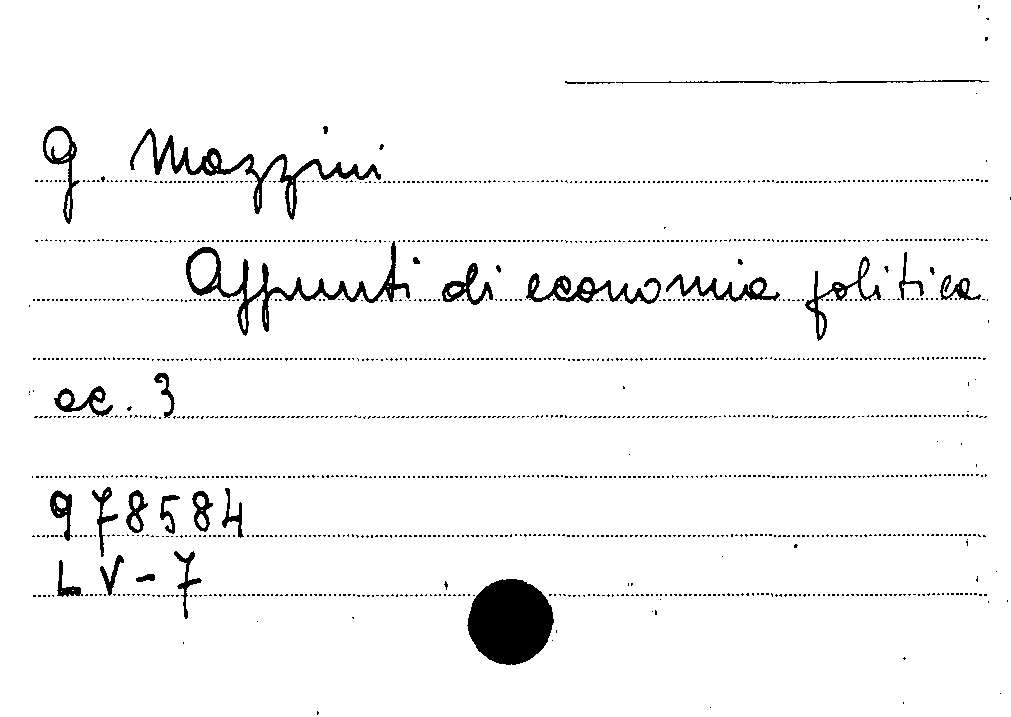 G. Mazzini
Appunti di economia politica
cc. 3
978584
LV-7